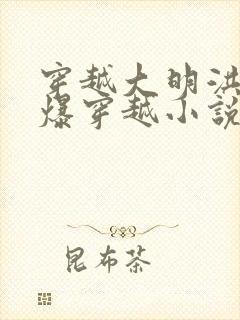 穿越大明洪
爆穿越小說
昆布茶